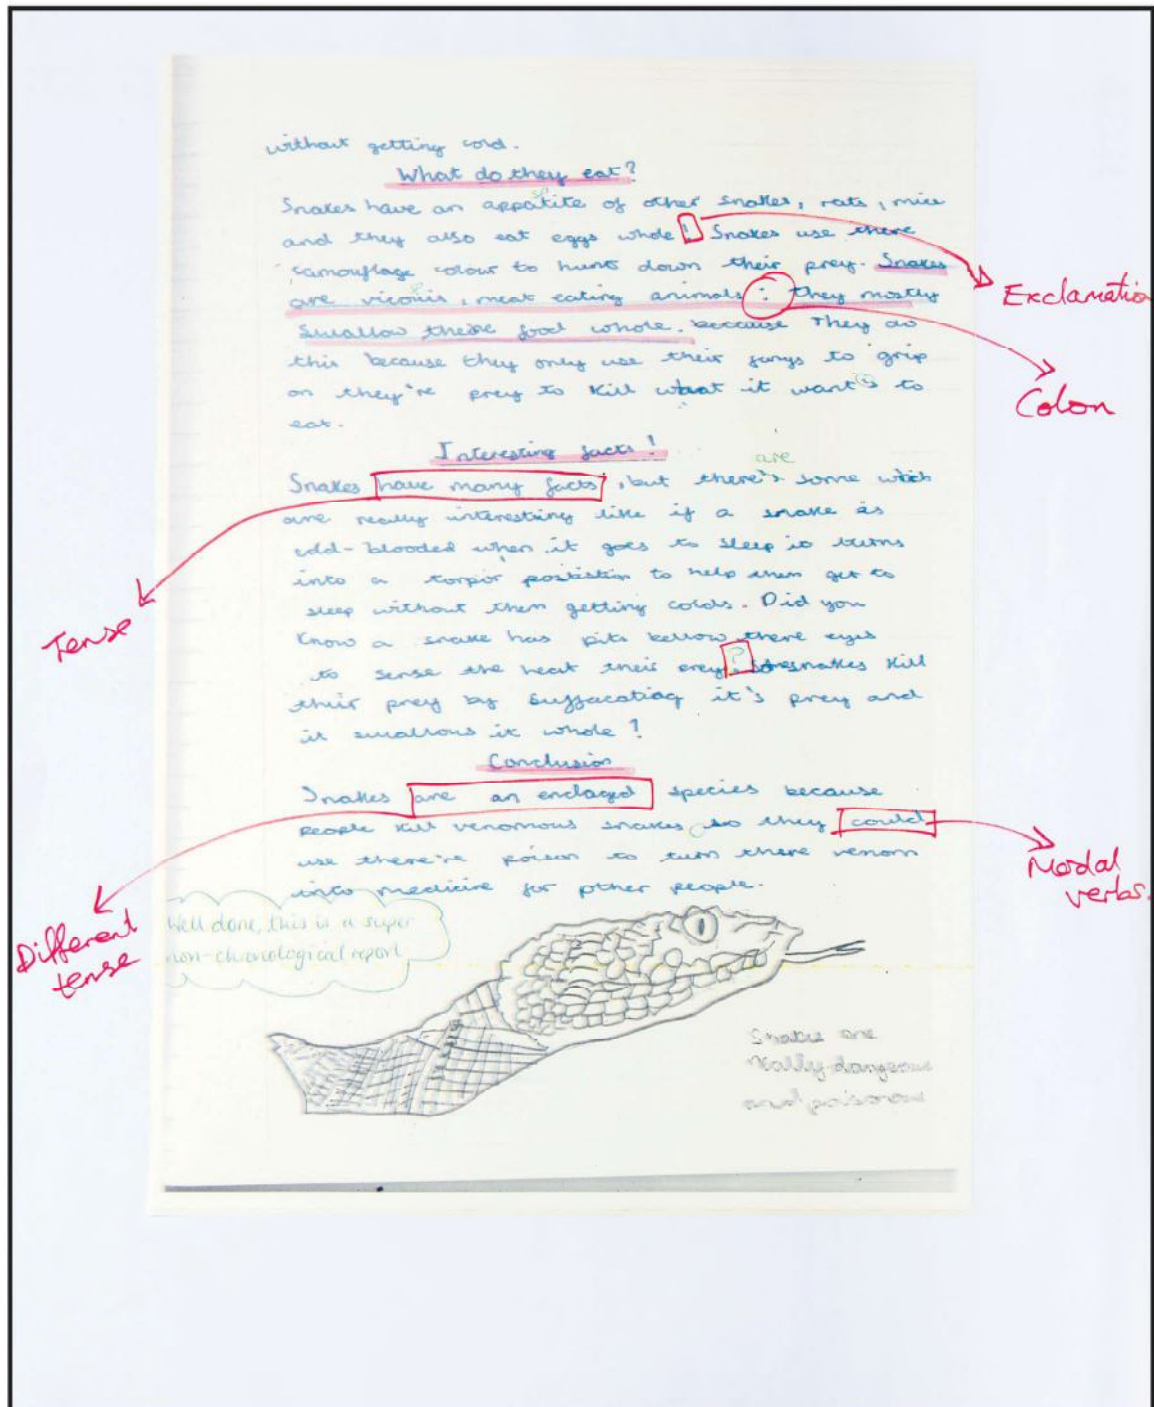 without getting cold.
What do they eat?
Snakes have an appatite of other snakes, rats, mice
sp
and they also eat eggs whole! Snakes use there
camouflage colour to hunt down their prey. Snakes
are vicouis, meat eating animals: they mostly
swallow theire food whole. because They do
this because they only use their fangs to grip
on they're prey to kill what it wants to
eat.
Interesting facts!
are
Snakes have many facts, but there's some which
are really interesting like if a snake is
cold-blooded when it goes to sleep it turns
into a torpor position to help them get to
sleep without them getting colds. Did you
know a snake has pits bellow there eyes
to sense the heat their prey? snakes kill
their prey by suffacating it's prey and
it swallows it whole!
Conclusion
Snakes are an endaged species because
people kill venomous snakes so they could
use there're poison to turn there venom
into medicine for other people.
Well done, this is a super
non-chronological report
Snakes are
really dangerous
and poisonous
Exclamation
Colon
Tense
Modal
verbs.
Different
tense